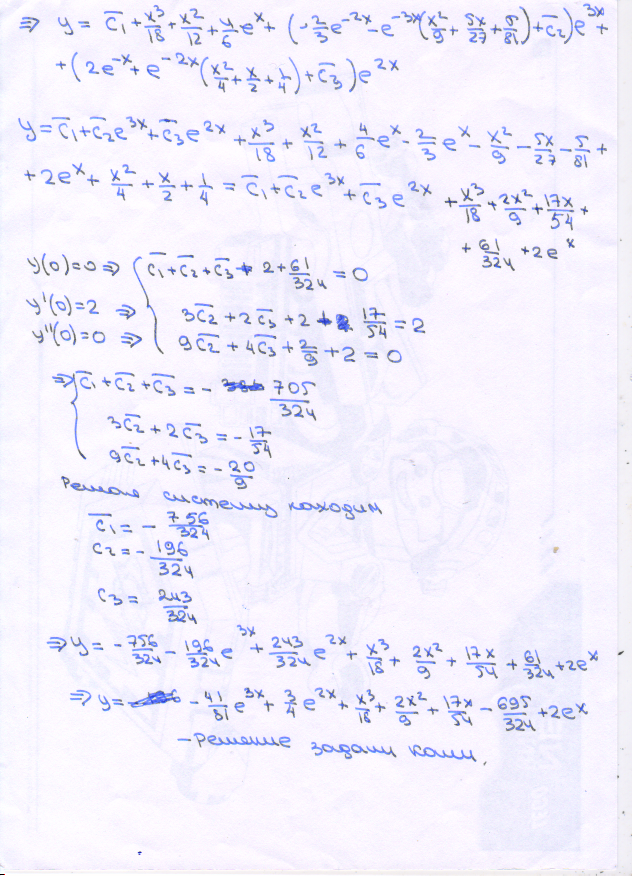 ⇒ y = C̄₁ + x³/18 + x²/12 + 4/6 eˣ + (-2/3 e⁻²ˣ - e⁻³ˣ(x²/9 + 5x/27 + 5/81) + C̄₂)e³ˣ +
+ (2e⁻ˣ + e⁻²ˣ(x²/4 + x/2 + 1/4) + C̄₃)e²ˣ
y = C̄₁ + C̄₂e³ˣ + C̄₃e²ˣ + x³/18 + x²/12 + 4/6 eˣ - 2/3 eˣ - x²/9 - 5x/27 - 5/81 +
+ 2eˣ + x²/4 + x/2 + 1/4 = C̄₁ + C̄₂e³ˣ + C̄₃e²ˣ + x³/18 + 2x²/9 + 17x/54 +
+ 61/324 + 2eˣ
y(0)=0 ⇒ { C̄₁ + C̄₂ + C̄₃ + 2 + 61/324 = 0
y'(0)=2 ⇒ 3C̄₂ + 2C̄₃ + 2 + 17/54 = 2
y''(0)=0 ⇒ 9C̄₂ + 4C̄₃ + 2/9 + 2 = 0
⇒ { C̄₁ + C̄₂ + C̄₃ = - 705/324
3C̄₂ + 2C̄₃ = - 17/54
9C̄₂ + 4C̄₃ = - 20/9
Решая систему находим
C̄₁ = - 756/324
C₂ = - 196/324
C₃ = 243/324
⇒ y = - 756/324 - 196/324 e³ˣ + 243/324 e²ˣ + x³/18 + 2x²/9 + 17x/54 + 61/324 + 2eˣ
⇒ y = - 41/81 e³ˣ + 3/4 e²ˣ + x³/18 + 2x²/9 + 17x/54 - 695/324 + 2eˣ
- Решение задачи Коши.